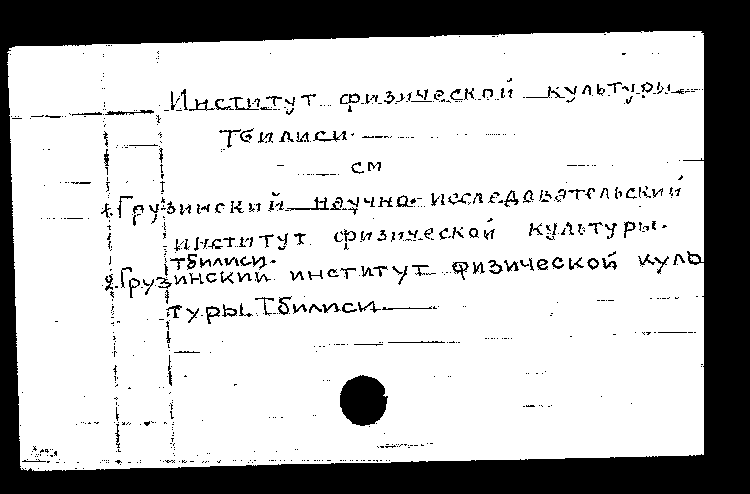 Институт физической культуры
Тбилиси.
см
1. Грузинский научно-исследовательский
институт физической культуры.
Тбилиси.
2. Грузинский институт физической куль
туры. Тбилиси.